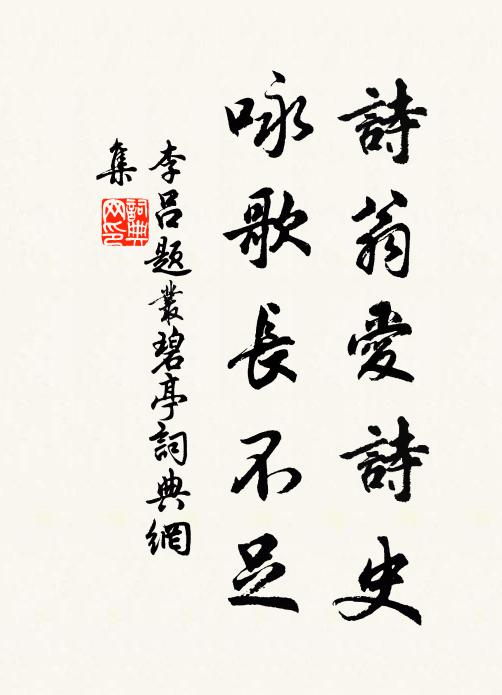 詩翁愛詩史
咏歌長不足
李呂題叢碧亭詞典網
集
詞典
网印